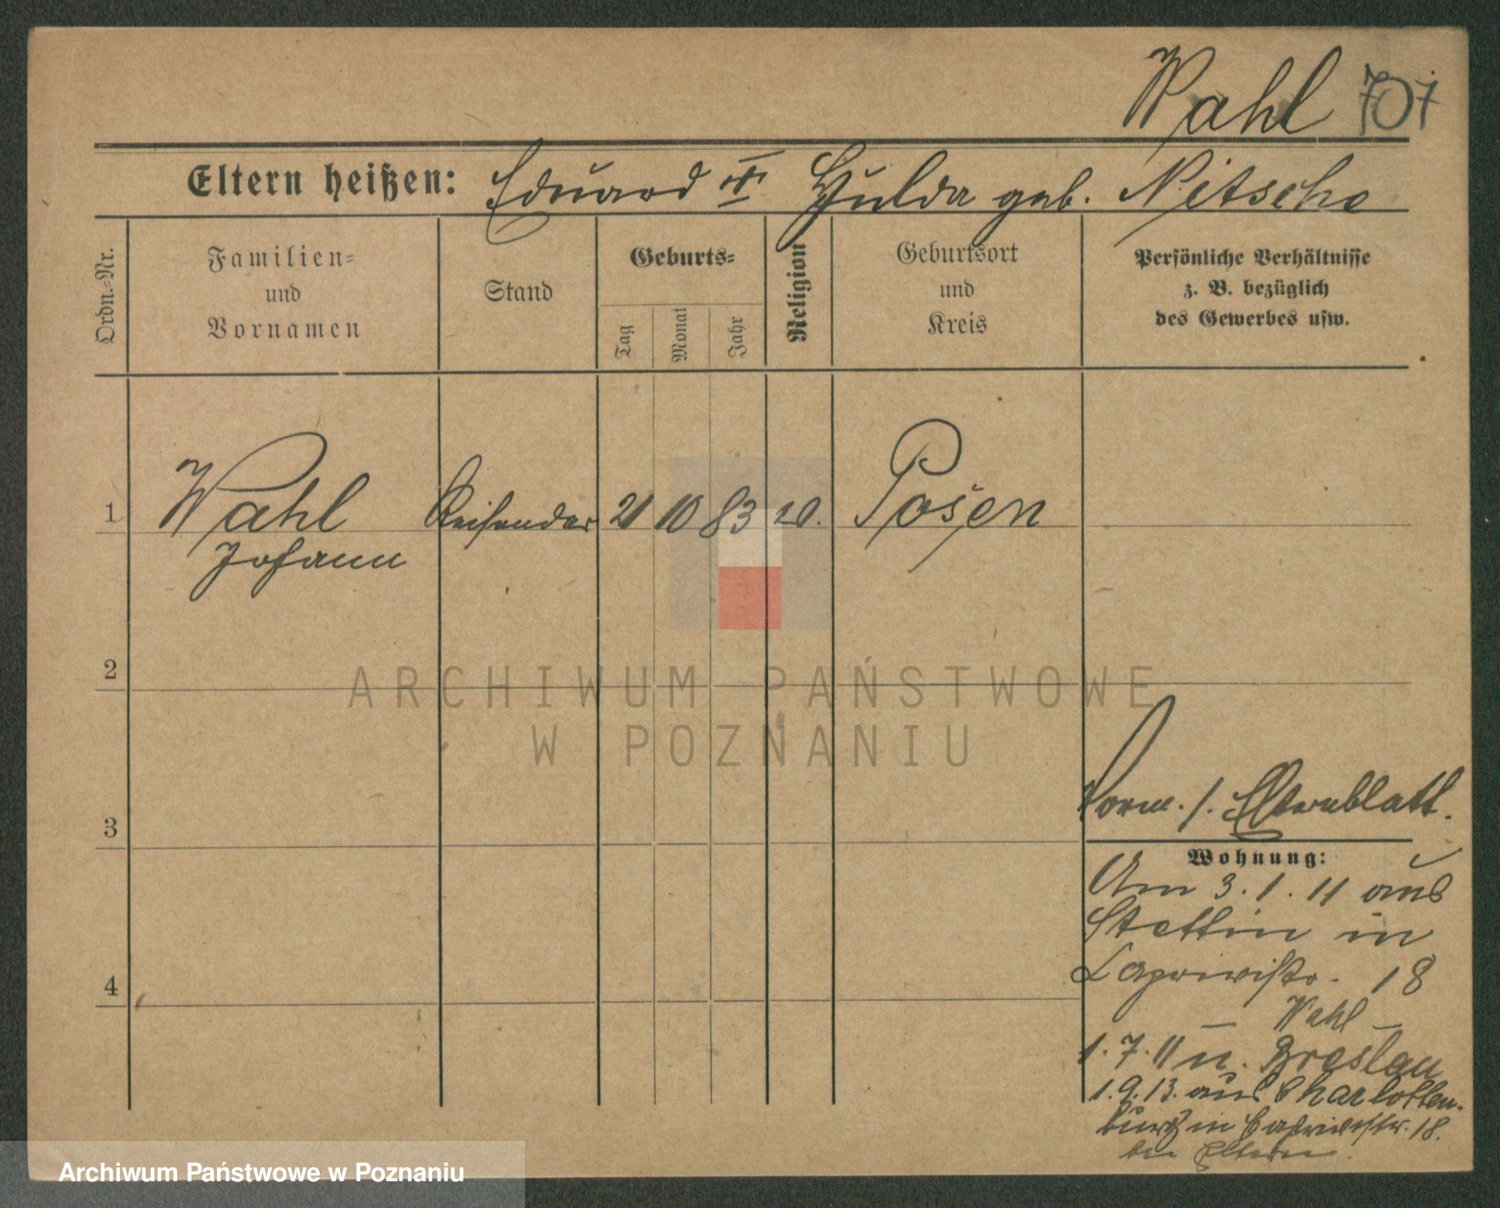 Wahl 707
Eltern heißen: Eduard u. Hulda geb. Nitsche
Ordn.-Nr.
Familien-
und
Vornamen
Stand
Geburts-
Tag
Monat
Jahr
Religion
Geburtsort
und
Kreis
Persönliche Verhältnisse
z. B. bezüglich
des Gewerbes usw.
1
Wahl Reisender 21 10 83 Posen
Johann
2
ARCHIWUM PAŃSTWOWE
W POZNANIU
3
Vorm. s. Elternblatt.
Wohnung:
Am 3.1.11 aus
Stettin in
18
4
Wahl
1.7.11 n. Breslau
1.9.13. aus Charlotten-
burg in 18.
bei Eltern.
Archiwum Państwowe w Poznaniu